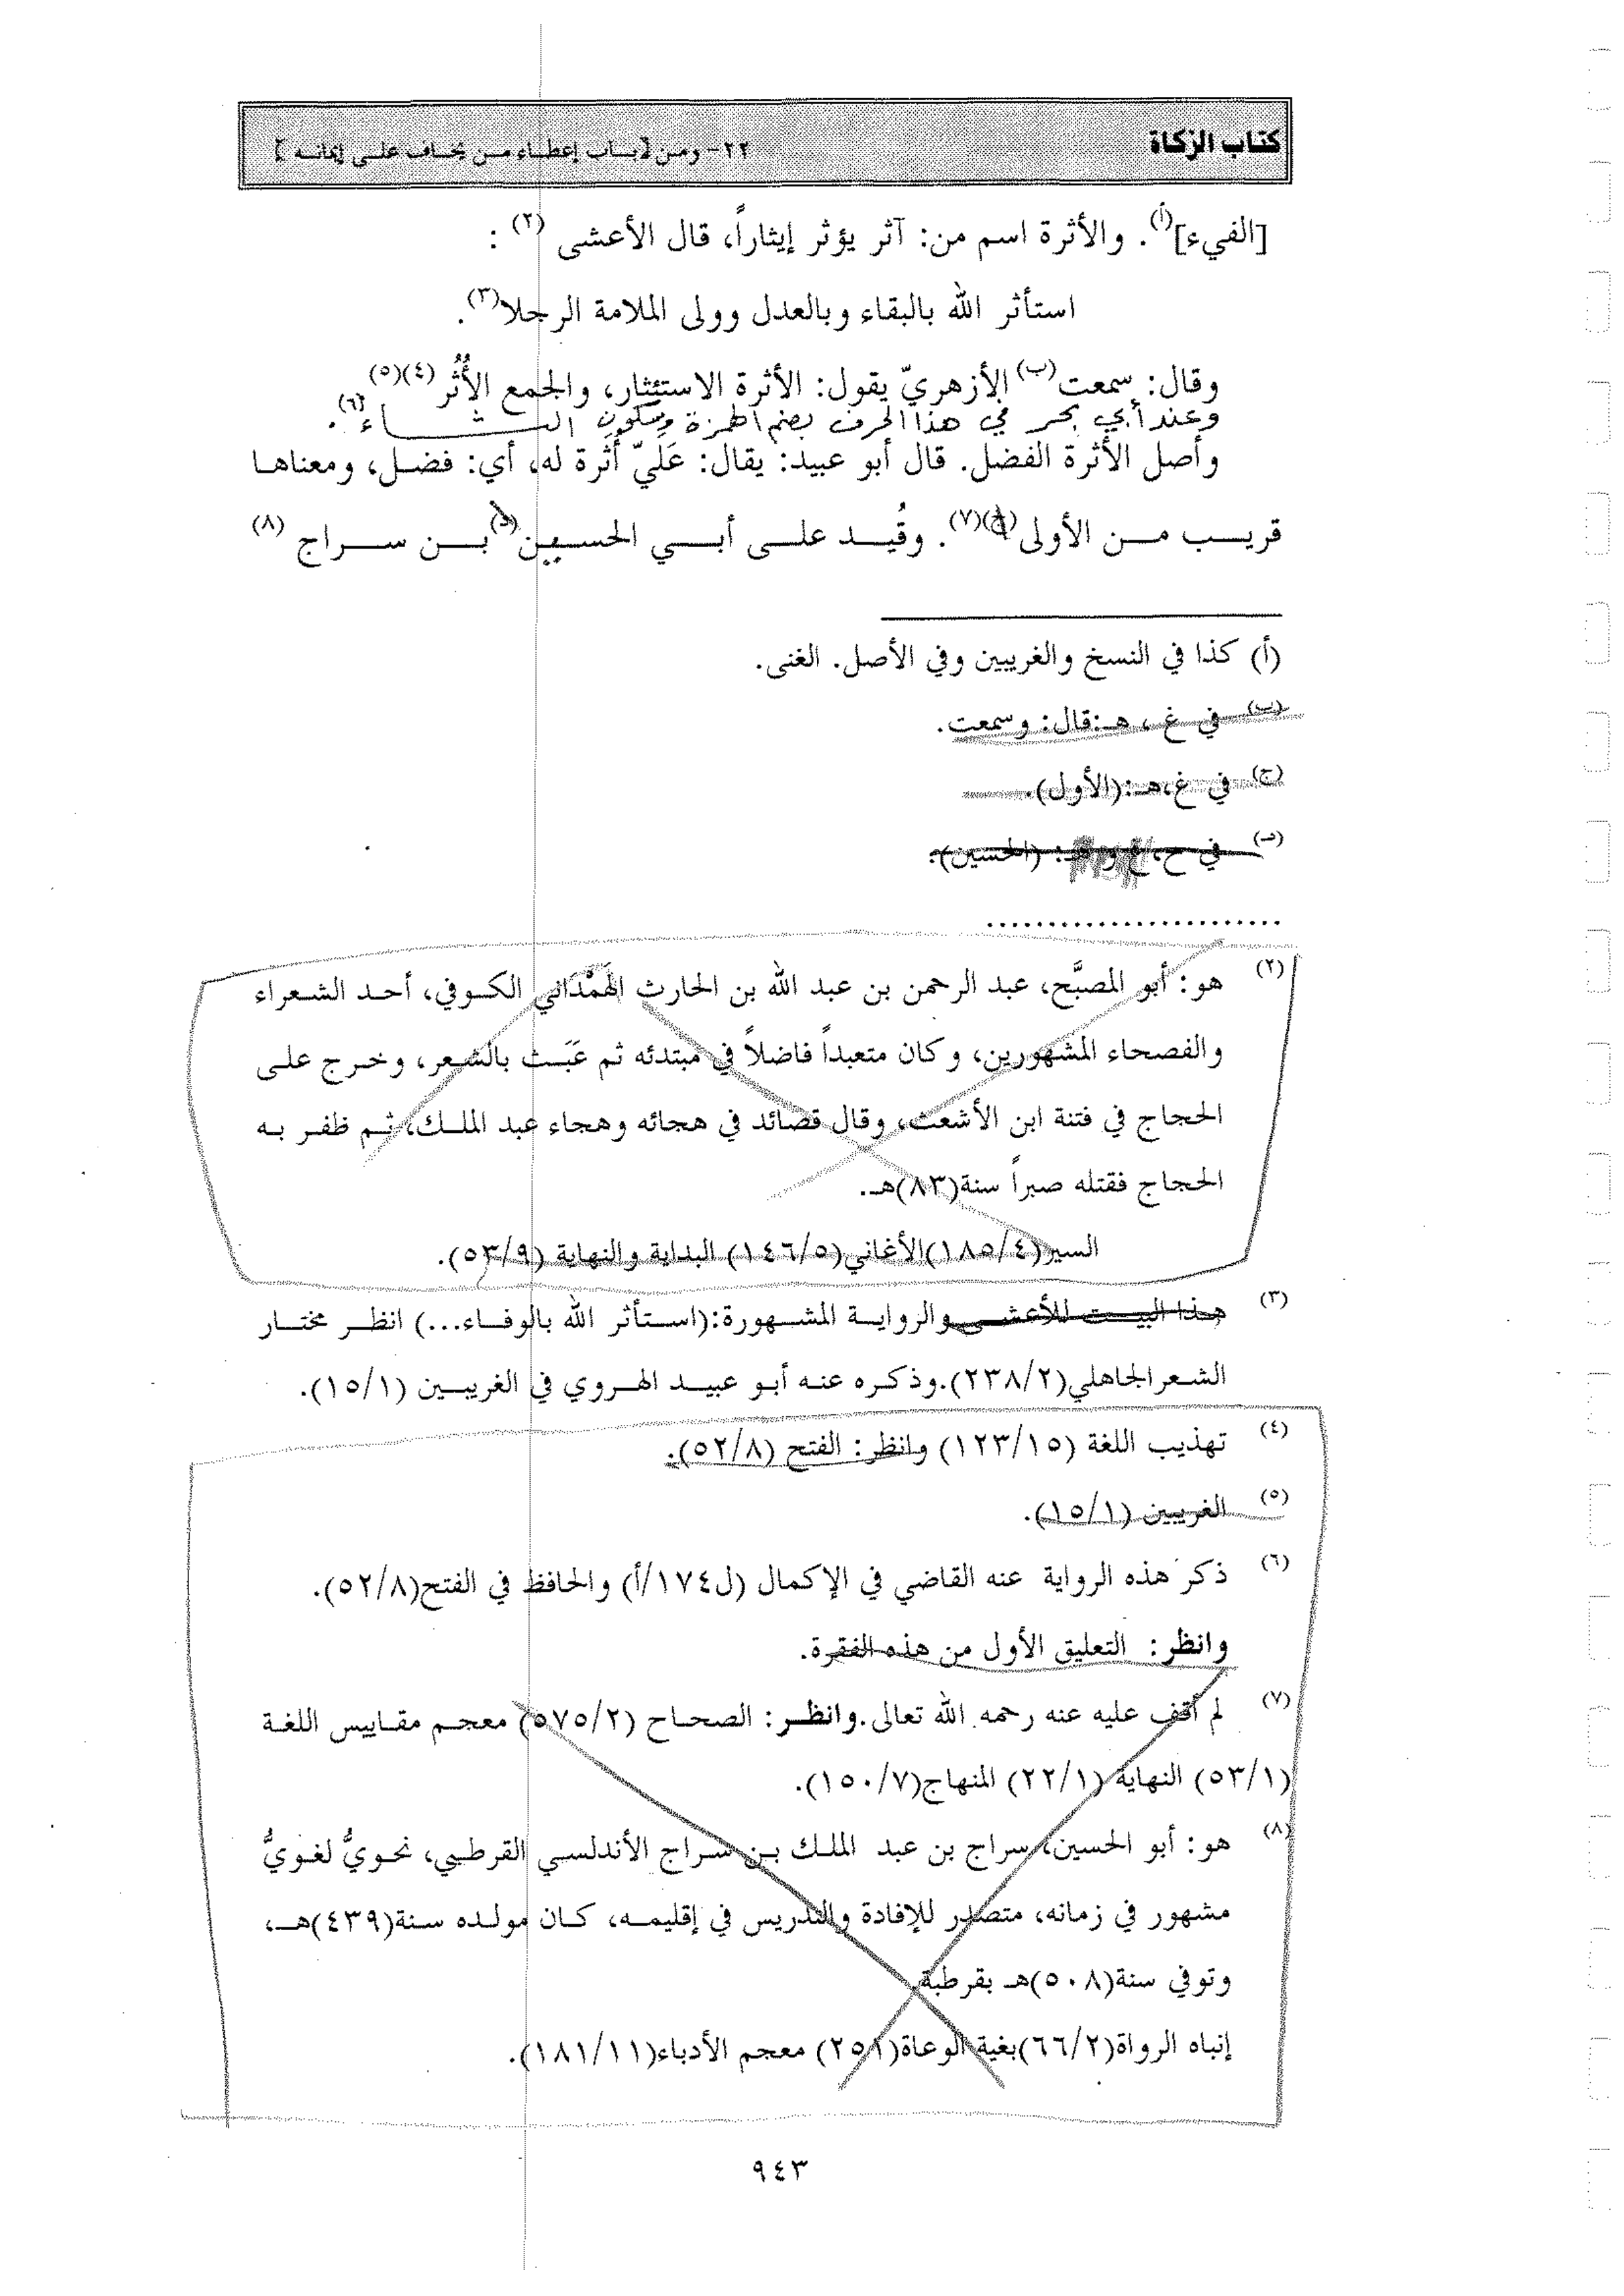 كتاب الزكاة
٢٢- ومن [باب إعطاء من يخاف على إيمانه]
[الفيء](أ). والأثرة اسم من: آثر يؤثر إيثاراً، قال الأعشى (٢) :
استأثر الله بالبقاء وبالعدل وولى الملامة الرجلا(٣).
وقال: سمعت(ب) الأزهريّ يقول: الأثرة الاستئثار، والجمع الأُثُر (٤)(٥)
وعند أبي بحر في هذا الحرف بضم الهمزة وسكون الثاء(٦).
وأصل الأثرة الفضل. قال أبو عبيد: يقال: عَلَيّ أُثَرة له، أي: فضل، ومعناها
قريب من الأولى(ج)(٧). وقُيد على أبي الحسين(د) بن سراج (٨)
(أ) كذا في النسخ والغريبين وفي الأصل. الغنى.
(ب) في غ، هـ:قال: وسمعت.
(ج) في غ،هـ:(الأول).
(د) في ح، : (الحسين).
(٢) هو: أبو المصبَّح، عبد الرحمن بن عبد الله بن الحارث الهَمْدَاني الكوفي، أحد الشعراء
والفصحاء المشهورين، وكان متعبداً فاضلاً في مبتدئه ثم عَبَث بالشعر، وخرج على
الحجاج في فتنة ابن الأشعث، وقال قصائد في هجائه وهجاء عبد الملك، ثم ظفر به
الحجاج فقتله صبراً سنة(٨٣)هـ.
السير(١٨٥/٤)الأغاني(١٤٦/٥) البداية والنهاية (٥٣/٩).
(٣) هذا البيت للأعشى والرواية المشهورة:(استأثر الله بالوفاء...) انظر مختار
الشعرالجاهلي(٢٣٨/٢).وذكره عنه أبو عبيد الهروي في الغريبين (١٥/١).
(٤) تهذيب اللغة (١٢٣/١٥) وانظر: الفتح (٥٢/٨).
(٥) الغريبين (١٥/١).
(٦) ذكر هذه الرواية عنه القاضي في الإكمال (ل١٧٤/أ) والحافظ في الفتح(٥٢/٨).
وانظر: التعليق الأول من هذه الفقرة.
(٧) لم أقف عليه عنه رحمه الله تعالى.وانظر: الصحاح (٥٧٥/٢) معجم مقاييس اللغة
(٥٣/١) النهاية (٢٢/١) المنهاج(١٥٠/٧).
(٨) هو: أبو الحسين، سراج بن عبد الملك بن سراج الأندلسي القرطبي، نحويٌّ لغويٌّ
مشهور في زمانه، متصدر للإفادة والتدريس في إقليمه، كان مولده سنة(٤٣٩)هـ،
وتوفي سنة(٥٠٨)هـ بقرطبة.
إنباه الرواة(٦٦/٢)بغية الوعاة(٢٥١) معجم الأدباء(١٨١/١١).
٩٤٣